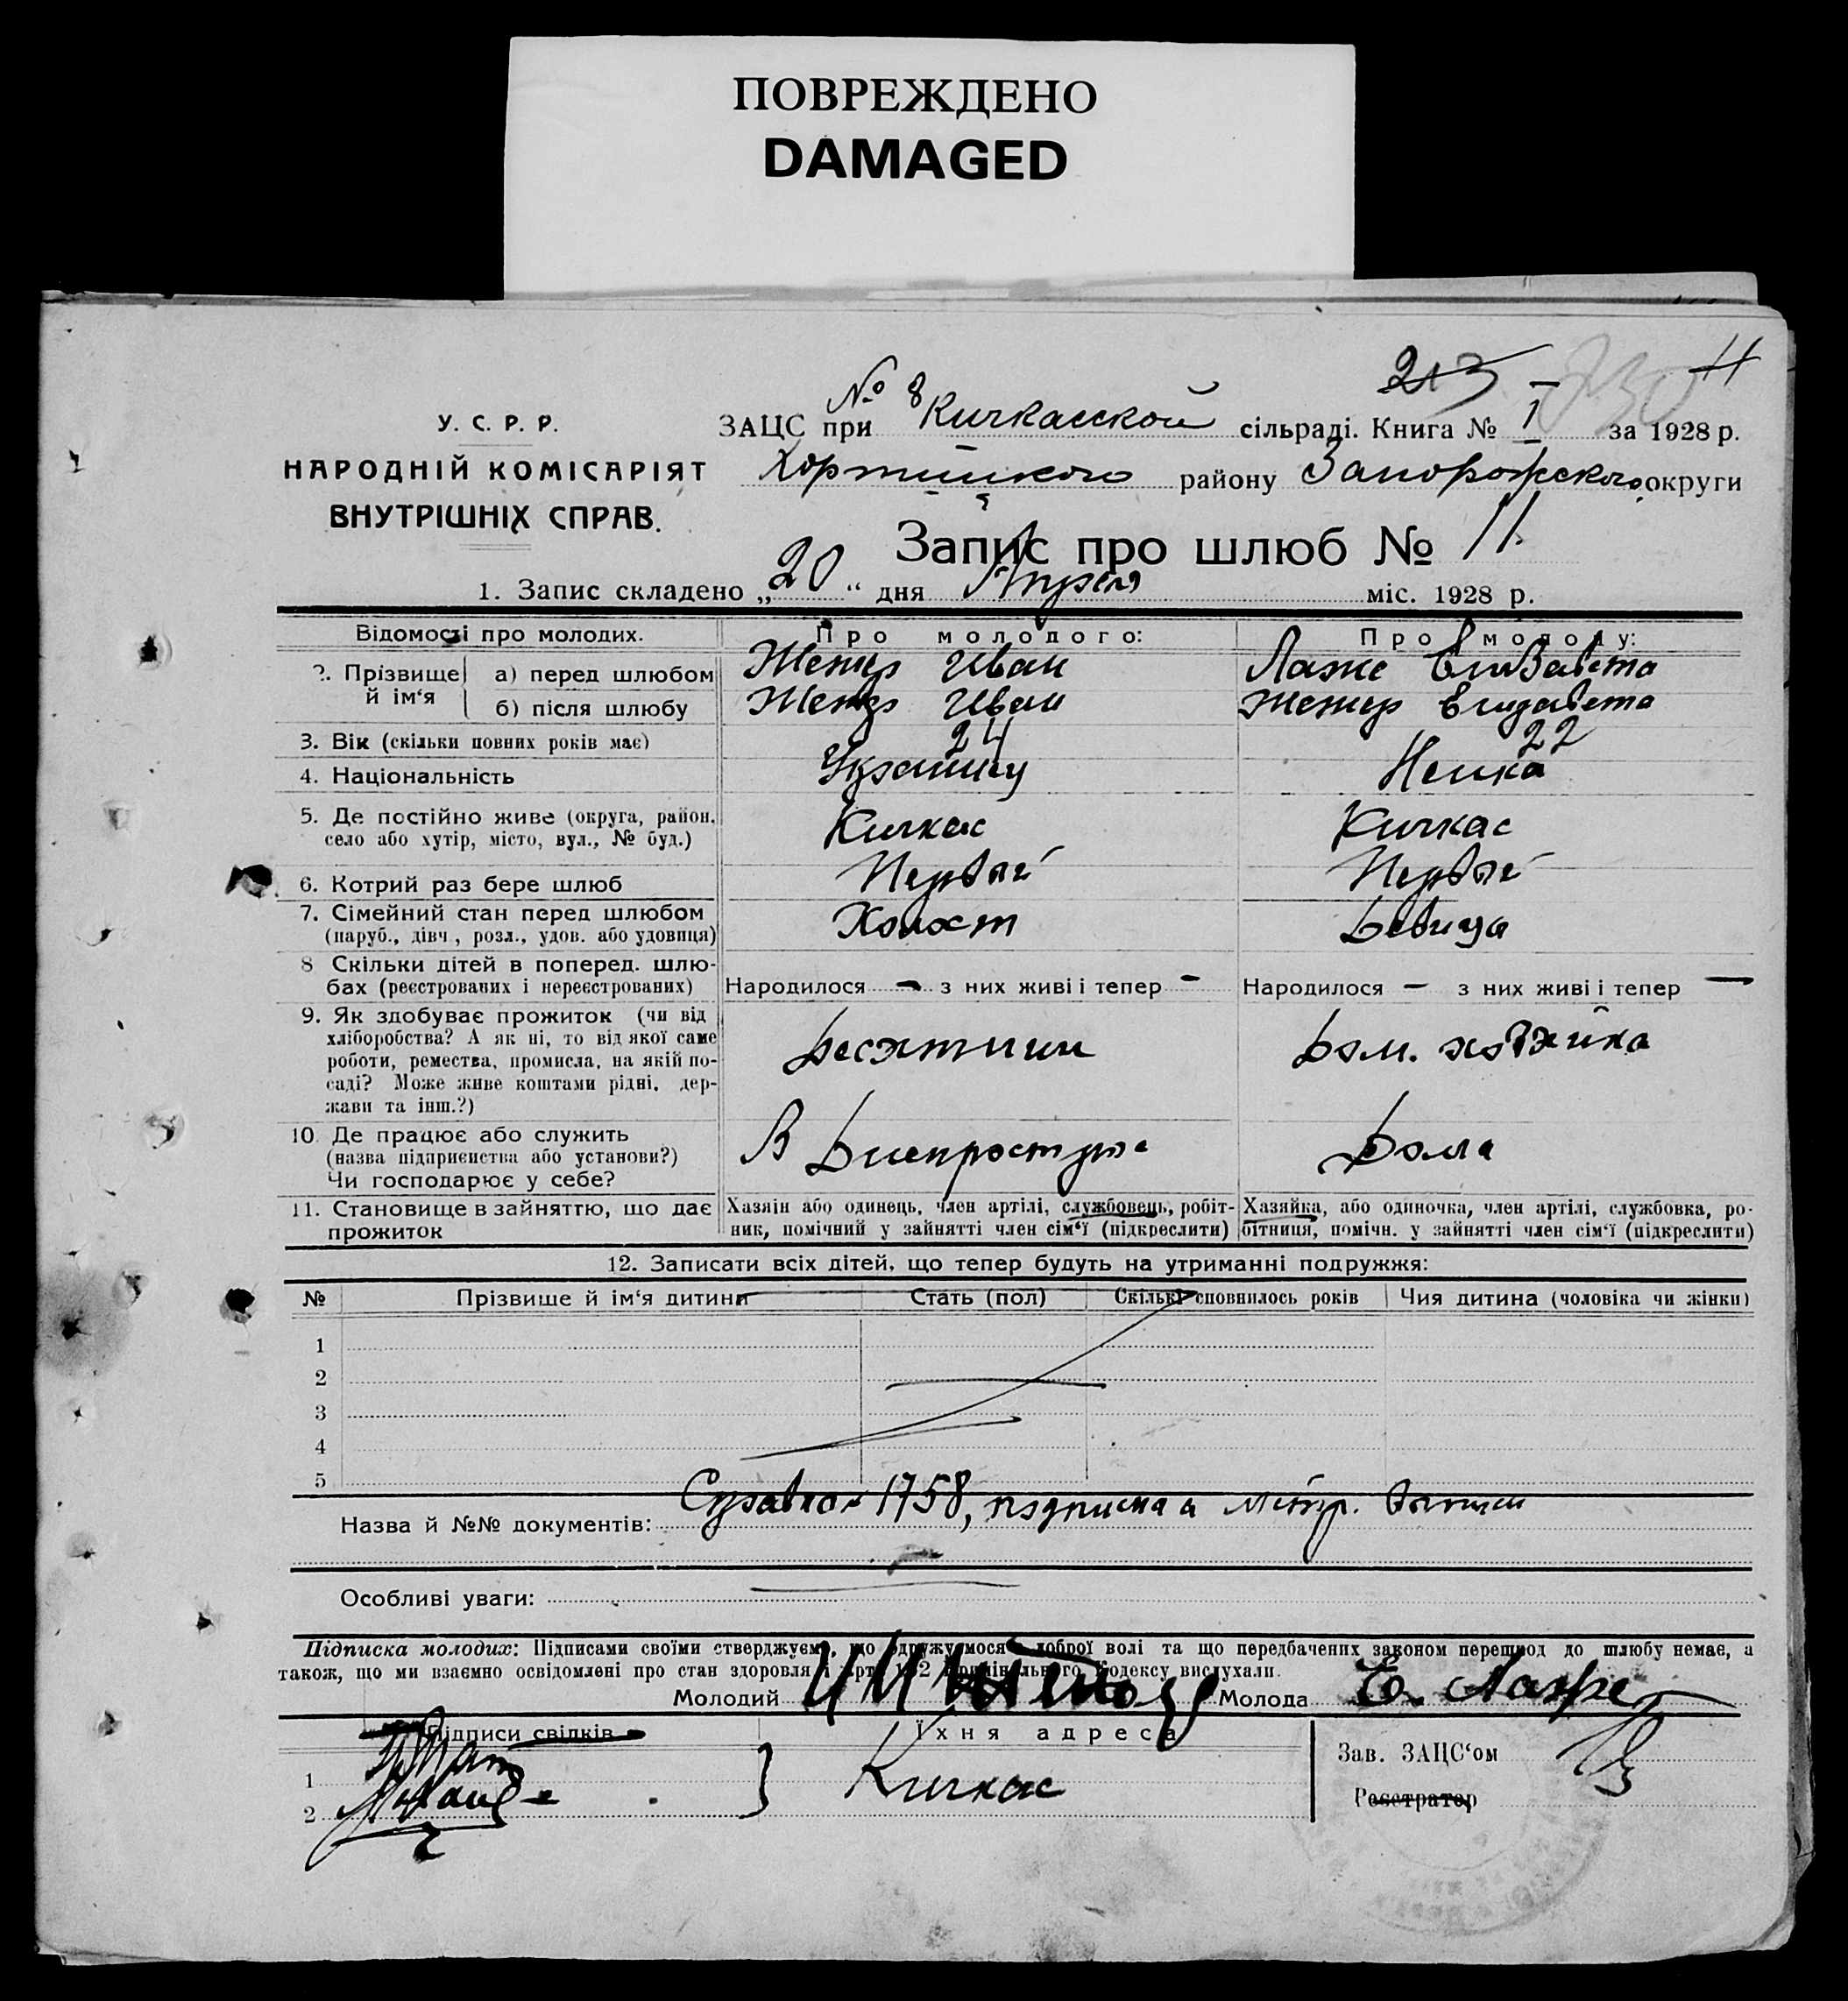 ПОВРЕЖДЕНО
DAMAGED
213 - 11
№ 8
У. С. Р. Р.
НАРОДНІЙ КОМІСАРІЯТ
ВНУТРІШНІХ СПРАВ.
ЗАЦС при Кичкасской сільраді. Книга № 1 за 1928 р.
Хортицкого району Запорожского округи
Запис про шлюб № 11.
1. Запис складено „20“ дня Апреля міс. 1928 р.
Відомості про молодих. Про молодого: Про молоду:
2. Прізвище й ім‘я
а) перед шлюбом Иван Елизавета
б) після шлюбу Иван Елизавета
3. Вік (скільки повних років має) 24 22
4. Національність Украинец Немка
5. Де постійно живе (округа, район, село або хутір, місто, вул., № буд.) Кичкас Кичкас
6. Котрий раз бере шлюб Первый Первый
7. Сімейний стан перед шлюбом (паруб., дівч., розл., удов. або удовиця) Холост Девица
8 Скільки дітей в поперед. шлюбах (реєстрованих і нереєстрованих) Народилося — з них живі і тепер — Народилося — з них живі і тепер —
9. Як здобуває прожиток (чи від хліборобства? А як ні, то від якої саме роботи, ремества, промисла, на якій посаді? Може живе коштами рідні, держави та інш.?) Десятник Дом. хозяйка
10. Де працює або служить (назва підприємства або установи?) Чи господарює у себе? В Днепрострое Дома
11. Становище в зайняттю, що дає прожиток
Хазяїн або одинець, член артілі, службовець, робітник, помічний у зайнятті член сім‘ї (підкреслити)
Хазяйка, або одиночка, член артілі, службовка, робітниця, помічн. у зайнятті член сім‘ї (підкреслити)
12. Записати всіх дітей, що тепер будуть на утриманні подружжя:
№ Прізвище й ім‘я дитини Стать (пол) Скільки сповнилось років Чия дитина (чоловіка чи жінки)
1
2
3
4
5
Назва й №№ документів: Справка 1758, подписка
Особливі уваги:
Підписка молодих: Підписами своїми стверджуємо, що одружуємося з доброї волі та що передбачених законом перешкод до шлюбу немає, а
також, що ми взаємно освідомлені про стан здоровля і арт. 152 Кримінального Кодексу вислухали.
Молодий Молода
Підписи свідків Їхня адреса
1
2
Кичкас
Зав. ЗАЦС‘ом
Реєстратор